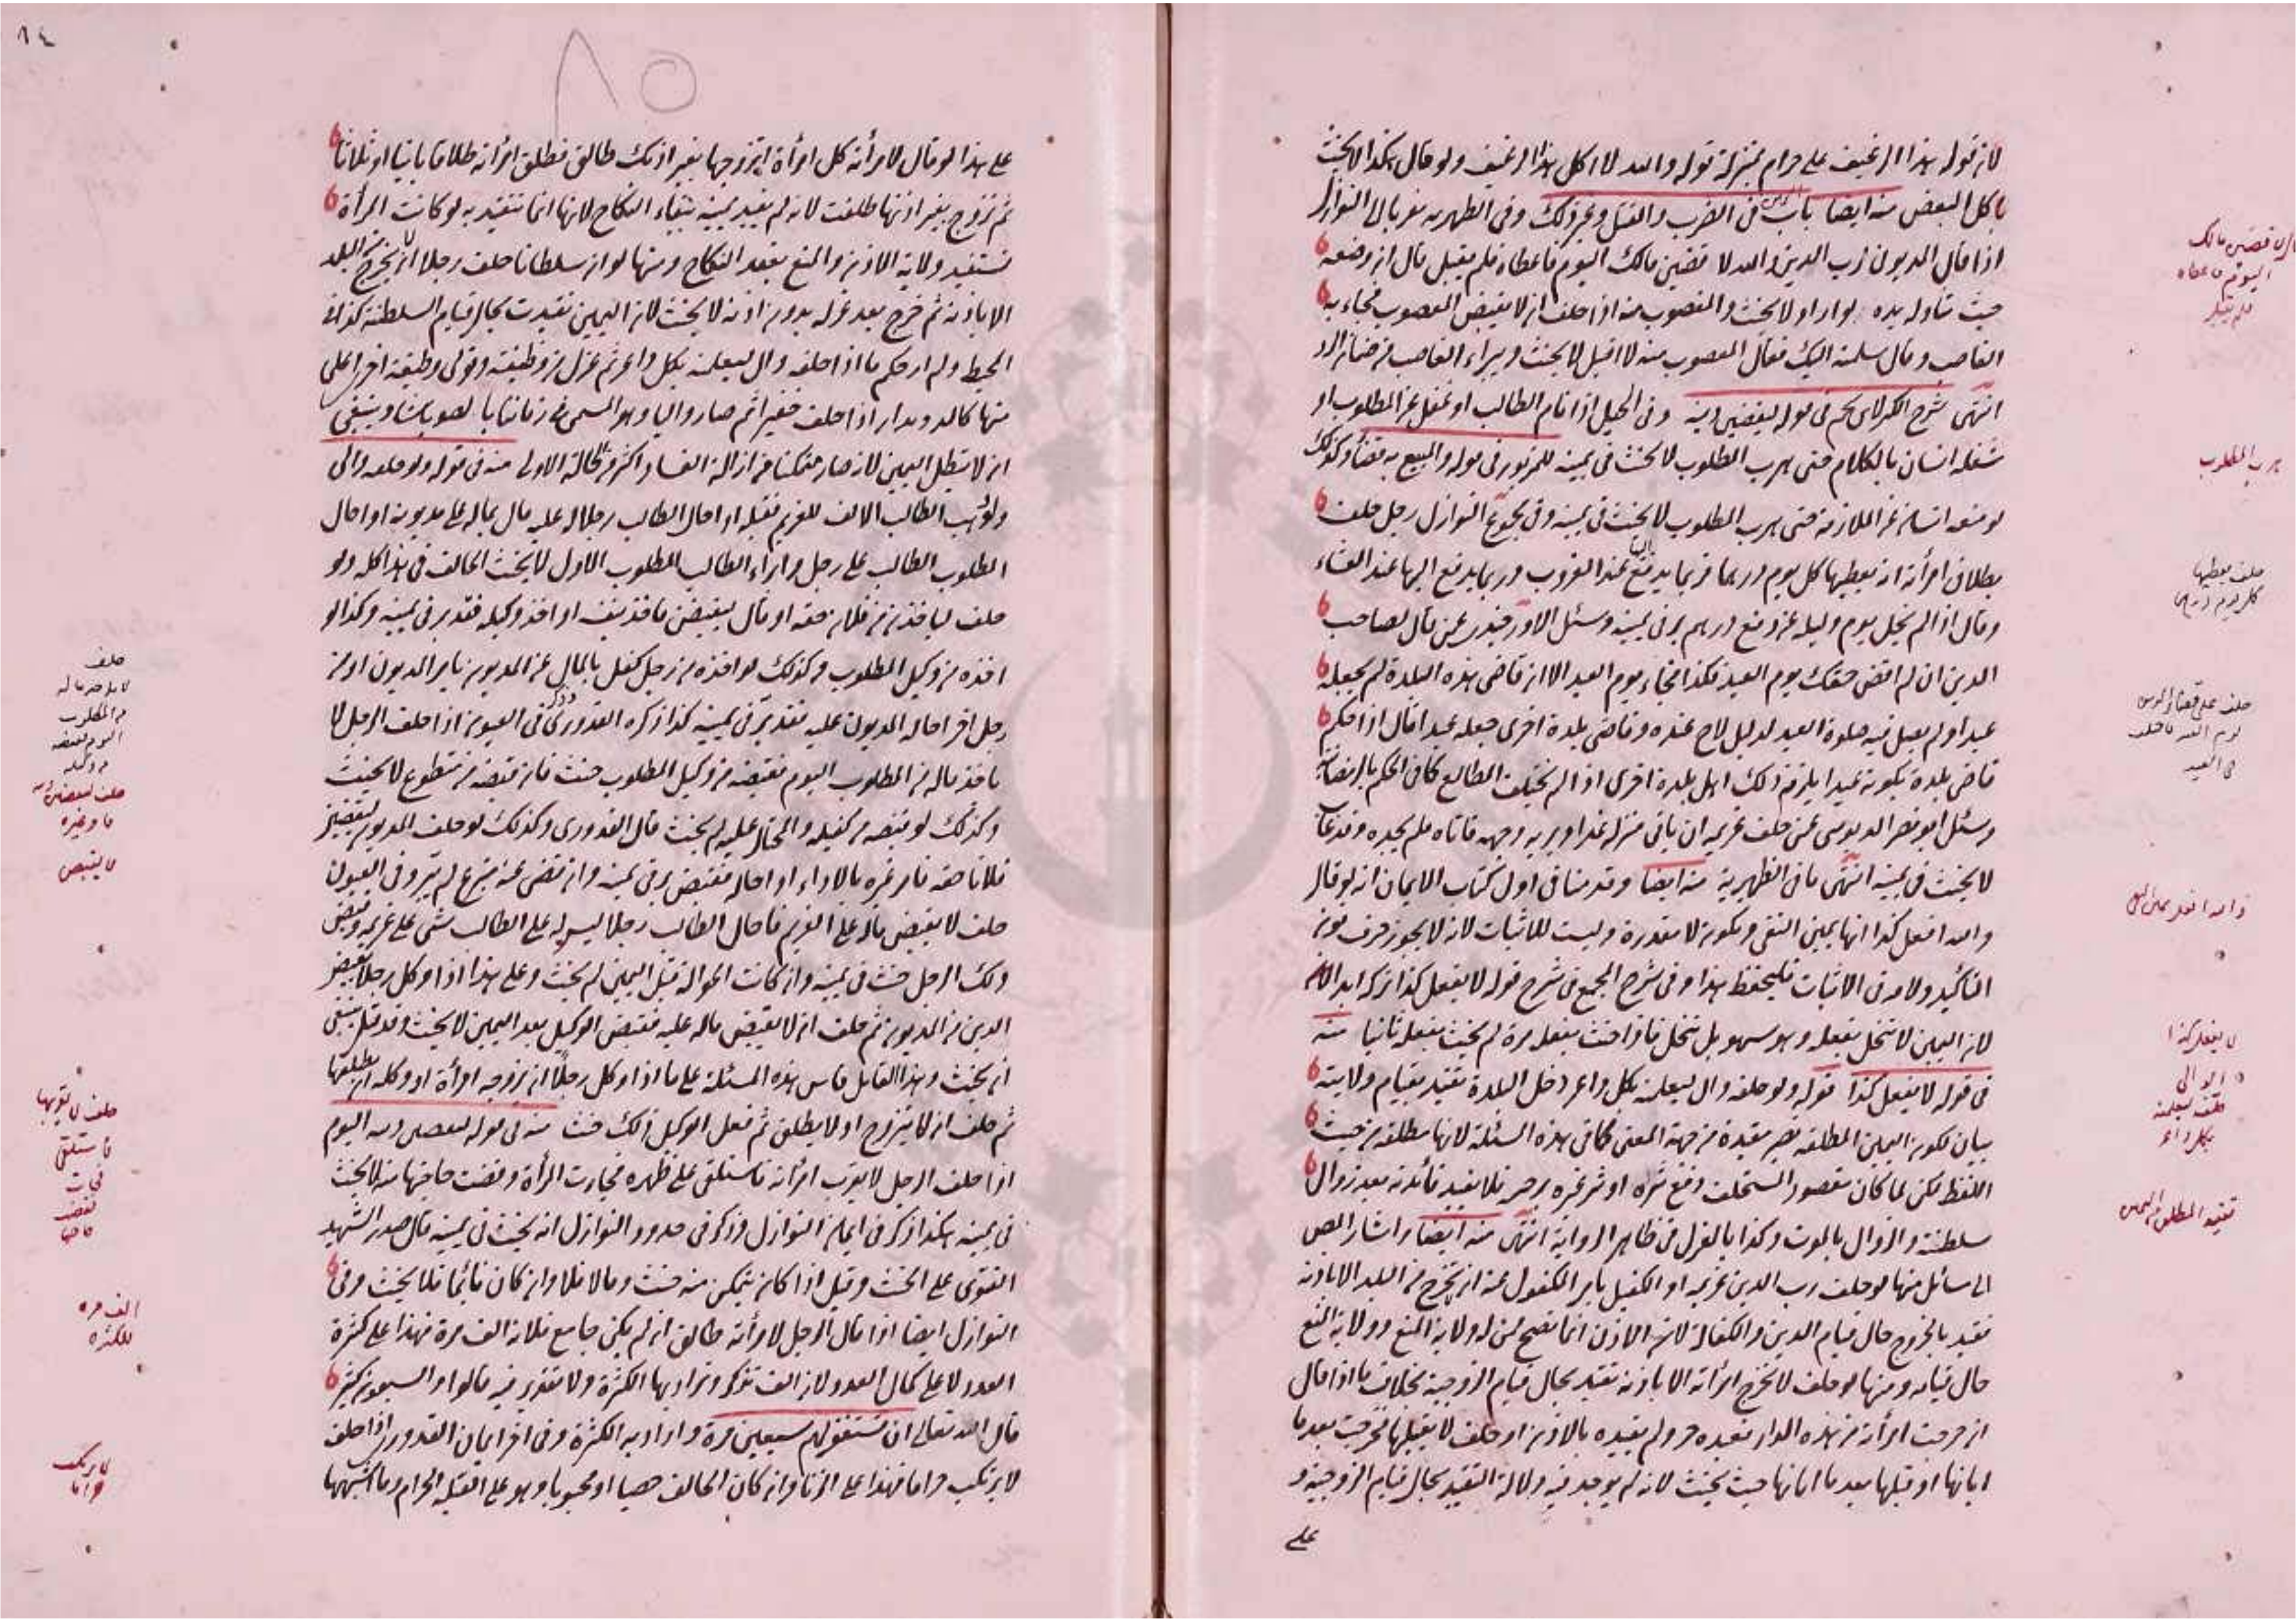 لان قوله هذا الرغيف علي حرام بمنزلة قوله والله لا اكل هذا الرغيف ولو قال هكذا لا يحنث
باكل البعض منه ايضا باب اليمين في الضرب والقتل وغير ذلك وفي الظهيريه معزيا الى النوازل
اذا قال المديون لرب الدين والله لاقضين مالك اليوم فاعطاه فلم يقبل قال ان وضعه
حيث تناوله يده لو اراد لا يحنث والمغصوب منه اذا حلف ان لا يقبض المغصوب فجاء به
الغاصب وقال سلمته اليك فقال المغصوب منه لا اقبل لا يحنث ويبراء الغاصب من ضمان الرد
انتهى شرح الكنز لاي في قوله ليقضين دينه وفي الحيل اذا نام الطالب او غفل عن المطلوب او
شغله انسان بالكلام حتى هرب المطلوب لا يحنث في يمينه للمزبور في قوله والبيع به قضاء وكذلك
لو منعه انسان عن الملازمة حتى هرب المطلوب لا يحنث في يمينه وفي مجموع النوازل رجل حلف
بطلاق امرأته ان يعطيها كل يوم درهما فربما يدفع اليها عند الغروب وربما يدفع اليها عند العشاء
وقال اذا لم يخل يوم وليلة عن دفع درهم بر في يمينه وسئل الاوزجندي عمن قال لصاحب
الدين ان لم اقض حقك يوم العيد فكذا فجاء يوم العيد الا ان قاضي هذه البلدة لم يجعله
عيدا ولم يصل فيه صلوة العيد لدليل لاح عنده وقاضي بلدة اخرى جعله عيدا قال اذا حكم
قاضي بلدة بكونه عيدا يلزم ذلك اهل بلدة اخرى اذا لم تختلف المطالع كما في الحكم بالرمضانية
وسئل ابو نصر الدبوسي عمن حلف غريمه ان ياتي منزله غدا ويريه وجهه فاتاه فلم يجده وقد غاب
لا يحنث في يمينه انتهى ما في الظهيرية منه ايضا وقد منا في اول كتاب الايمان انه لو قال
والله افعل كذا انها يمين النفي وتكون لا مقدرة وليست للاثبات لانه لا يجوز حذف نون
التأكيد ولامه في الاثبات فليحفظ هذا وفي شرح المجمع في شرح قوله لا يفعل كذا تركه ابدا لان
لان اليمين لا تنحل بفعله وهو سهو بل تنحل فاذا حنث بفعله مرة لم يحنث بفعله ثانيا منه
في قوله لا يفعل كذا قوله ولو حلفه وال ليعلمنه بكل داعر دخل البلدة تقيد بقيام ولايته
بيان لكون اليمين المطلقه تصير مقيدة من جهة المعنى كما في هذه المسئلة لانها مطلقه من حيث
اللفظ لكن لما كان مقصود المستحلف دفع شره او شر غيره بزجره فلا يفيد فائدته بعد زوال
سلطنته والزوال بالموت وكذا بالعزل في ظاهر الرواية انتهى منه ايضا واشار المص
الى مسائل منها لو حلف رب الدين غريمه او الكفيل بامر المكفول عنه ان لا يخرج من البلد الا باذنه
تقيد بالخروج حال قيام الدين والكفالة لان الاذن انما يصح لمن له ولاية المنع وولاية المنع
حال قيامه ومنها لو حلف لا تخرج امرأته الا باذنه تقيد بحال قيام الزوجية بخلاف ما اذا قال
ان خرجت امرأته من هذه الدار فعبده حر ولم يقيده بالاذن او حلف لا يقبلها فخرجت بعد ما
ابانها او قبلها بعد ما ابانها حيث يحنث لانه لم يوجد فيه دلالة التقييد بحال قيام الزوجية و
على
هرب المطلوب
حلف يعطيها
كل يوم درهم
لا يفعل كذا
الوالي
حلف ليعلمنه
بكل داعر
٨٥
على هذا لو قال لامرأته كل امرأة اتزوجها بغير اذنك طالق فطلق امرأته طلاقا بائنا او ثلاثا
ثم تزوج بغير اذنها طلقت لانه لم يقيد يمينه ببقاء النكاح لانها انما تتقيد به لو كانت المرأة
تستفيد ولاية الاذن والمنع بعقد النكاح ومنها لو ان سلطانا حلف رجلا ان لا يخرج من البلد
الا باذنه ثم خرج بعد عزله بدون اذنه لا يحنث لان اليمين تقيدت بحال قيام السلطنة كذا في
المحيط ولم ار حكم ما اذا حلفه وال ليعلمنه بكل داعر ثم عزل من وظيفته وتولى وظيفة اخرى اعلى
منها كالدويدار اذا حلف خفيرا ثم صار واليا وهو المسمى في زماننا بالصوباشا وينبغي
ان لا تبطل اليمين لانه صار متمكنا من ازالة الفساد اكثر من الحالة الاولى منه في قوله ولو حلفه والى
ولو وهب الطالب الالف للغريم فقبله او احال الطالب رجلا له عليه مال بماله على مديونه او احال
المطلوب الطالب على رجل وابراء الطالب المطلوب الاول لا يحنث الحالف في هذا كله ولو
حلف لياخذن من فلان حقه او قال ليقبضن فاخذ بنفسه او اخذ وكيله فقد بر في يمينه وكذا لو
اخذه من وكيل المطلوب وكذلك لو اخذه من رجل كفل بالمال عن المديون بامر المديون او من
رجل اخر احاله المديون عليه فقد بر في يمينه كذا ذكره القدوري في العيون اذا حلف الرجل لا
ياخذ ماله من المطلوب اليوم فقبضه من وكيل المطلوب حنث فان قبضه من متطوع لا يحنث
وكذلك لو قبضه من كفيله والمحتال عليه لم يحنث قال القدوري وكذلك لو حلف المديون ليقضين
فلانا حقه فامر غيره بالاداء او احاله فقبض بر في يمينه وان قضى عنه متبرع لم يبر وفي العيون
حلف لا يقبض ماله على الغريم فاحال الطالب رجلا ليس له على الطالب شئ على غريمه وقبض
ذلك الرجل حنث في يمينه وان كانت الحوالة قبل اليمين لم يحنث وعلى هذا اذا وكل رجلا بقبض
الدين من المديون ثم حلف ان لا يقبض ماله عليه فقبض الوكيل بعد اليمين لا يحنث وقد قيل ينبغي
ان يحنث وهذا القائل قاس هذه المسئلة على ما اذا وكل رجلا ان يزوجه امرأة او وكله ان يطلقها
ثم حلف ان لا يتزوج او لا يطلق ثم فعل الوكيل ذلك حنث منه في قوله ليقضين دينه اليوم
اذا حلف الرجل لا يقرب امرأته فاستلقى على ظهره فجاءت المرأة وقضت حاجتها منه لا يحنث
في يمينه هكذا ذكر في ايمان النوازل وذكر في حدود النوازل انه يحنث في يمينه قال صدر الشهيد
الفتوى على الحنث وقيل اذا كان يتمكن منه حنث ومالا فلا وان كان نائما فلا يحنث وفي
النوازل ايضا اذا قال الرجل لامرأته طالق ان لم يكن جامع فلانة الف مرة فهذا على كثرة
العدد لا على كمال العدد لان الف تذكر وتراد بها الكثرة ولا تقدير فيه قالوا والسبعون كثير
قال الله تعالى ان تستغفر لهم سبعين مرة واراد به الكثرة وفي اخر ايمان القدوري اذا حلف
لا يرتكب حراما فهذا على الزنا وان كان الحالف خصيا او مجبوبا وهو على القبلة الحرام وما اشبهها
حلف
من المطلوب
لا يقبض
حلف لا يقربها
فاستلقى
فجاءت
الف مره
للكثره
لا يرتكب
حراما